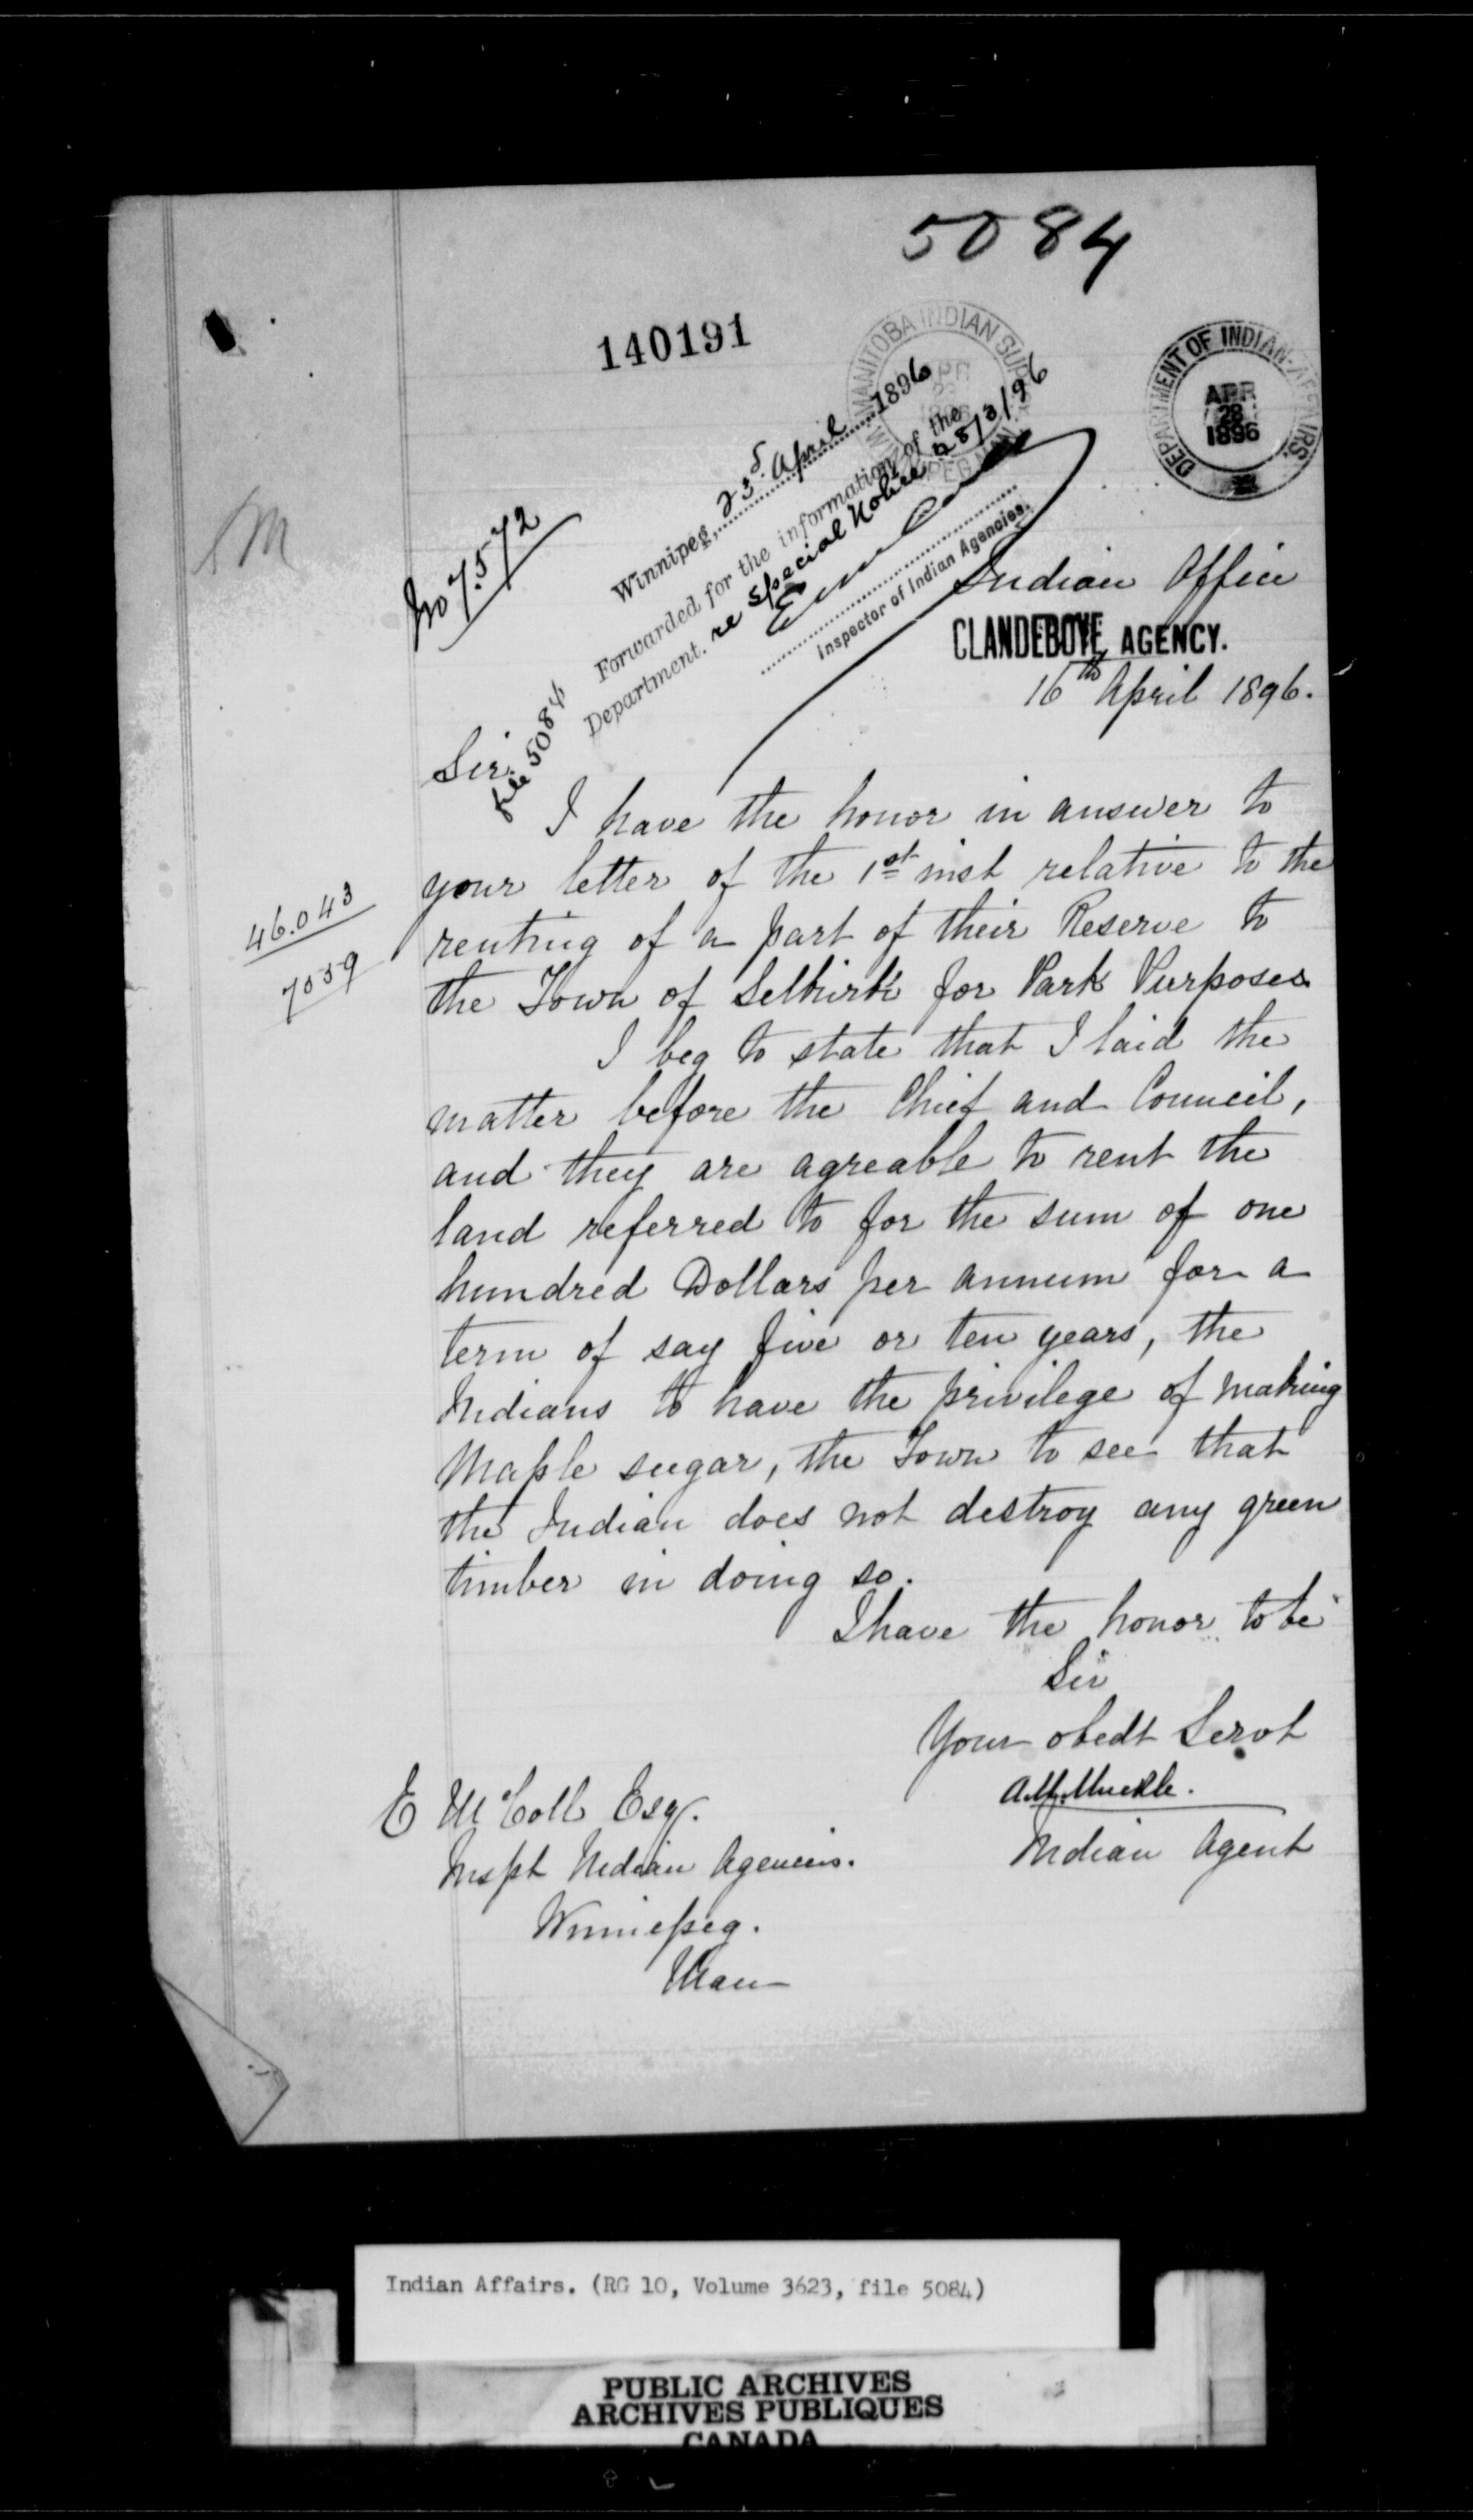 5084
140191
MANITOBA INDIAN SUP
DEPARTMENT OF INDIAN AFFAIRS.
APR
28
1896
M
No 7572
Winnipeg, 23d April 1896
Forwarded for the information of the
Department. re Special Notice 28/3/96
Inspector of Indian Agencies.
file 5084
Indian Office
CLANDEBOYE AGENCY.
16th April 1896.
Sir.
I have the honor in answer to
your letter of the 1st inst relative to the
46.043
renting of a part of their Reserve to
7059
the Town of Selkirk for Park Purposes
I beg to state that I laid the
matter before the Chief and Council,
and they are agreable to rent the
land referred to for the sum of one
hundred Dollars per annum for a
term of say five or ten years, the
Indians to have the privilege of making
Maple sugar, the Town to see that
the Indian does not destroy any green
timber in doing so.
I have the honor to be
Sir
Your obedt Servt
A.M. Muckle.
Indian Agent
E McColl Esq.
Inspt Indian Agencies.
Winnipeg.
Man
Indian Affairs. (RG 10, Volume 3623, file 5084)
PUBLIC ARCHIVES
ARCHIVES PUBLIQUES
CANADA